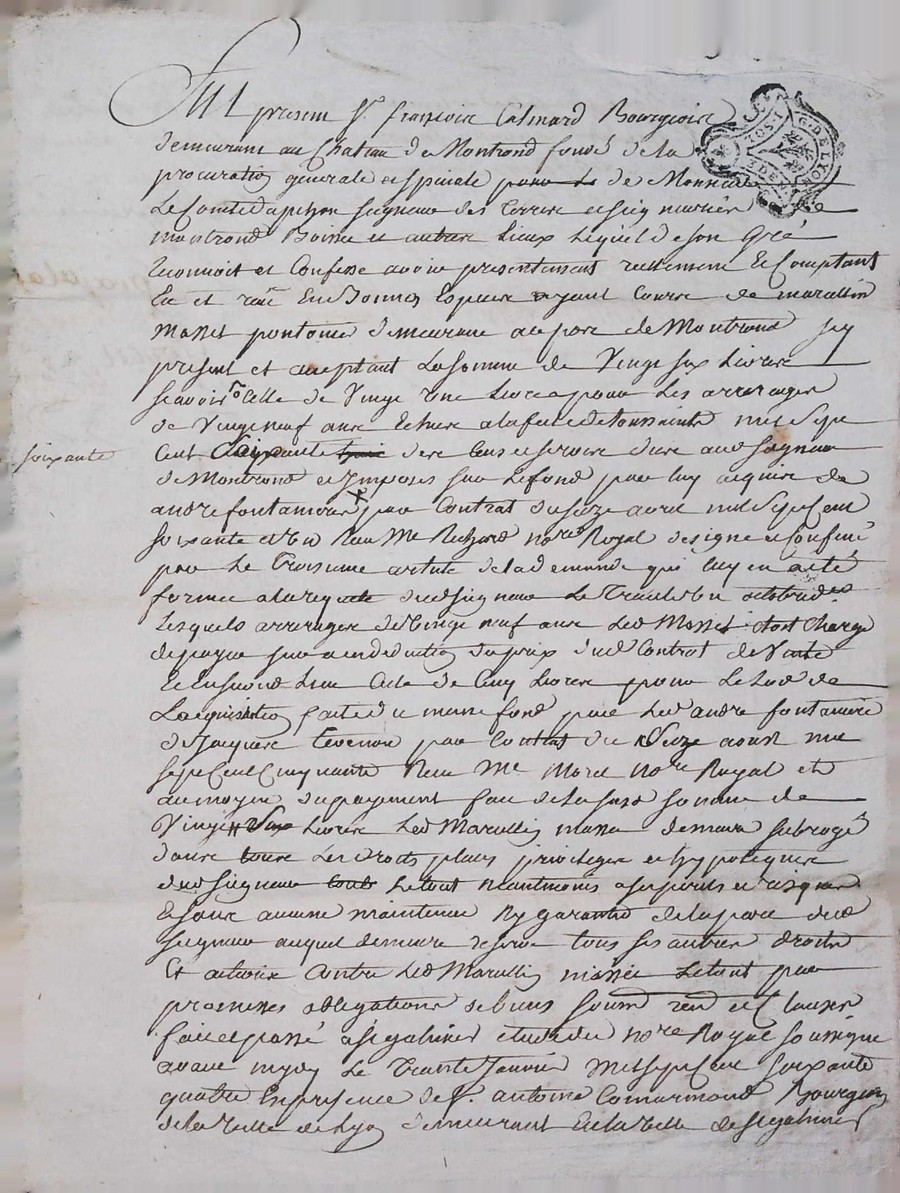 Fut present Sr. françois Calmard Bourgeois
demeurant au Chateau de Montrond fondé de la
procuration generale et speciale de Monsieur
Le Comte d'apchon seigneur des terres et seigneuries de
montrond Boisset et autres Lieux Lequel de son gré
Reconnoit et Confesse avoir presentement reellement et Comptant
Eu et receu En bonnes Especes ayant Cours de
Masset demeurant au port de Montrond
present et aceptant La somme de Vingt six Livres
scavoir Celle de Vingt une Livres pour Les arrerages
de Vingt neuf ans Echus a la fete de toussaints mil sept
Cent soixante des Cens et servis dus aud seigneur
soixante
de Montrond et Imposés sur Le fond par luy acquis de
andre fontaniere par Contrat du seize avril mil sept Cent
soixante et un Receu Me Richard nore Royal designé et Confiné
par Le Troisieme article de la demande qui luy en a eté
formée a la requete dud seigneur Le Trente un octobre
Lesquels arrerages de Vingt neuf ans Led Masset etoit Chargé
de payer en deduction du prix dud Contrat de Vente
Et En second Lieu Celle de Cinq Livres pour Le Lod de
L'acquisition faite du meme fond par Led andre fontaniere
de Jacques Tevenon par Contrat du seize aoust mil
sept Cent Cinquante Receu Me Morel Nore Royal et
au moyen du payement fait de la susd somme de
Vingt six Livres Led Masset demeure subrogé
dans tous Les droits places privileges et hypoteques
dud seigneur Le tout neantmoins a ses perils et risques
Et sans aucune maintenue Ny garantie de la part dud
seigneur auquel demeure reservé tous ses autres droits
Et actions Contre Led Masset Le tout par
promesses obligations de biens soum ren et Clauses
fait et passé a st galmier etude du nore Royal soussigné
avant midy Le Trente Janvier Mil sept Cent soixante
quatre En presence de Sr. antoine Comarmond Bourgeois
de la ville de Lyon demeurant En la ville de st galmier
G. D E LYON